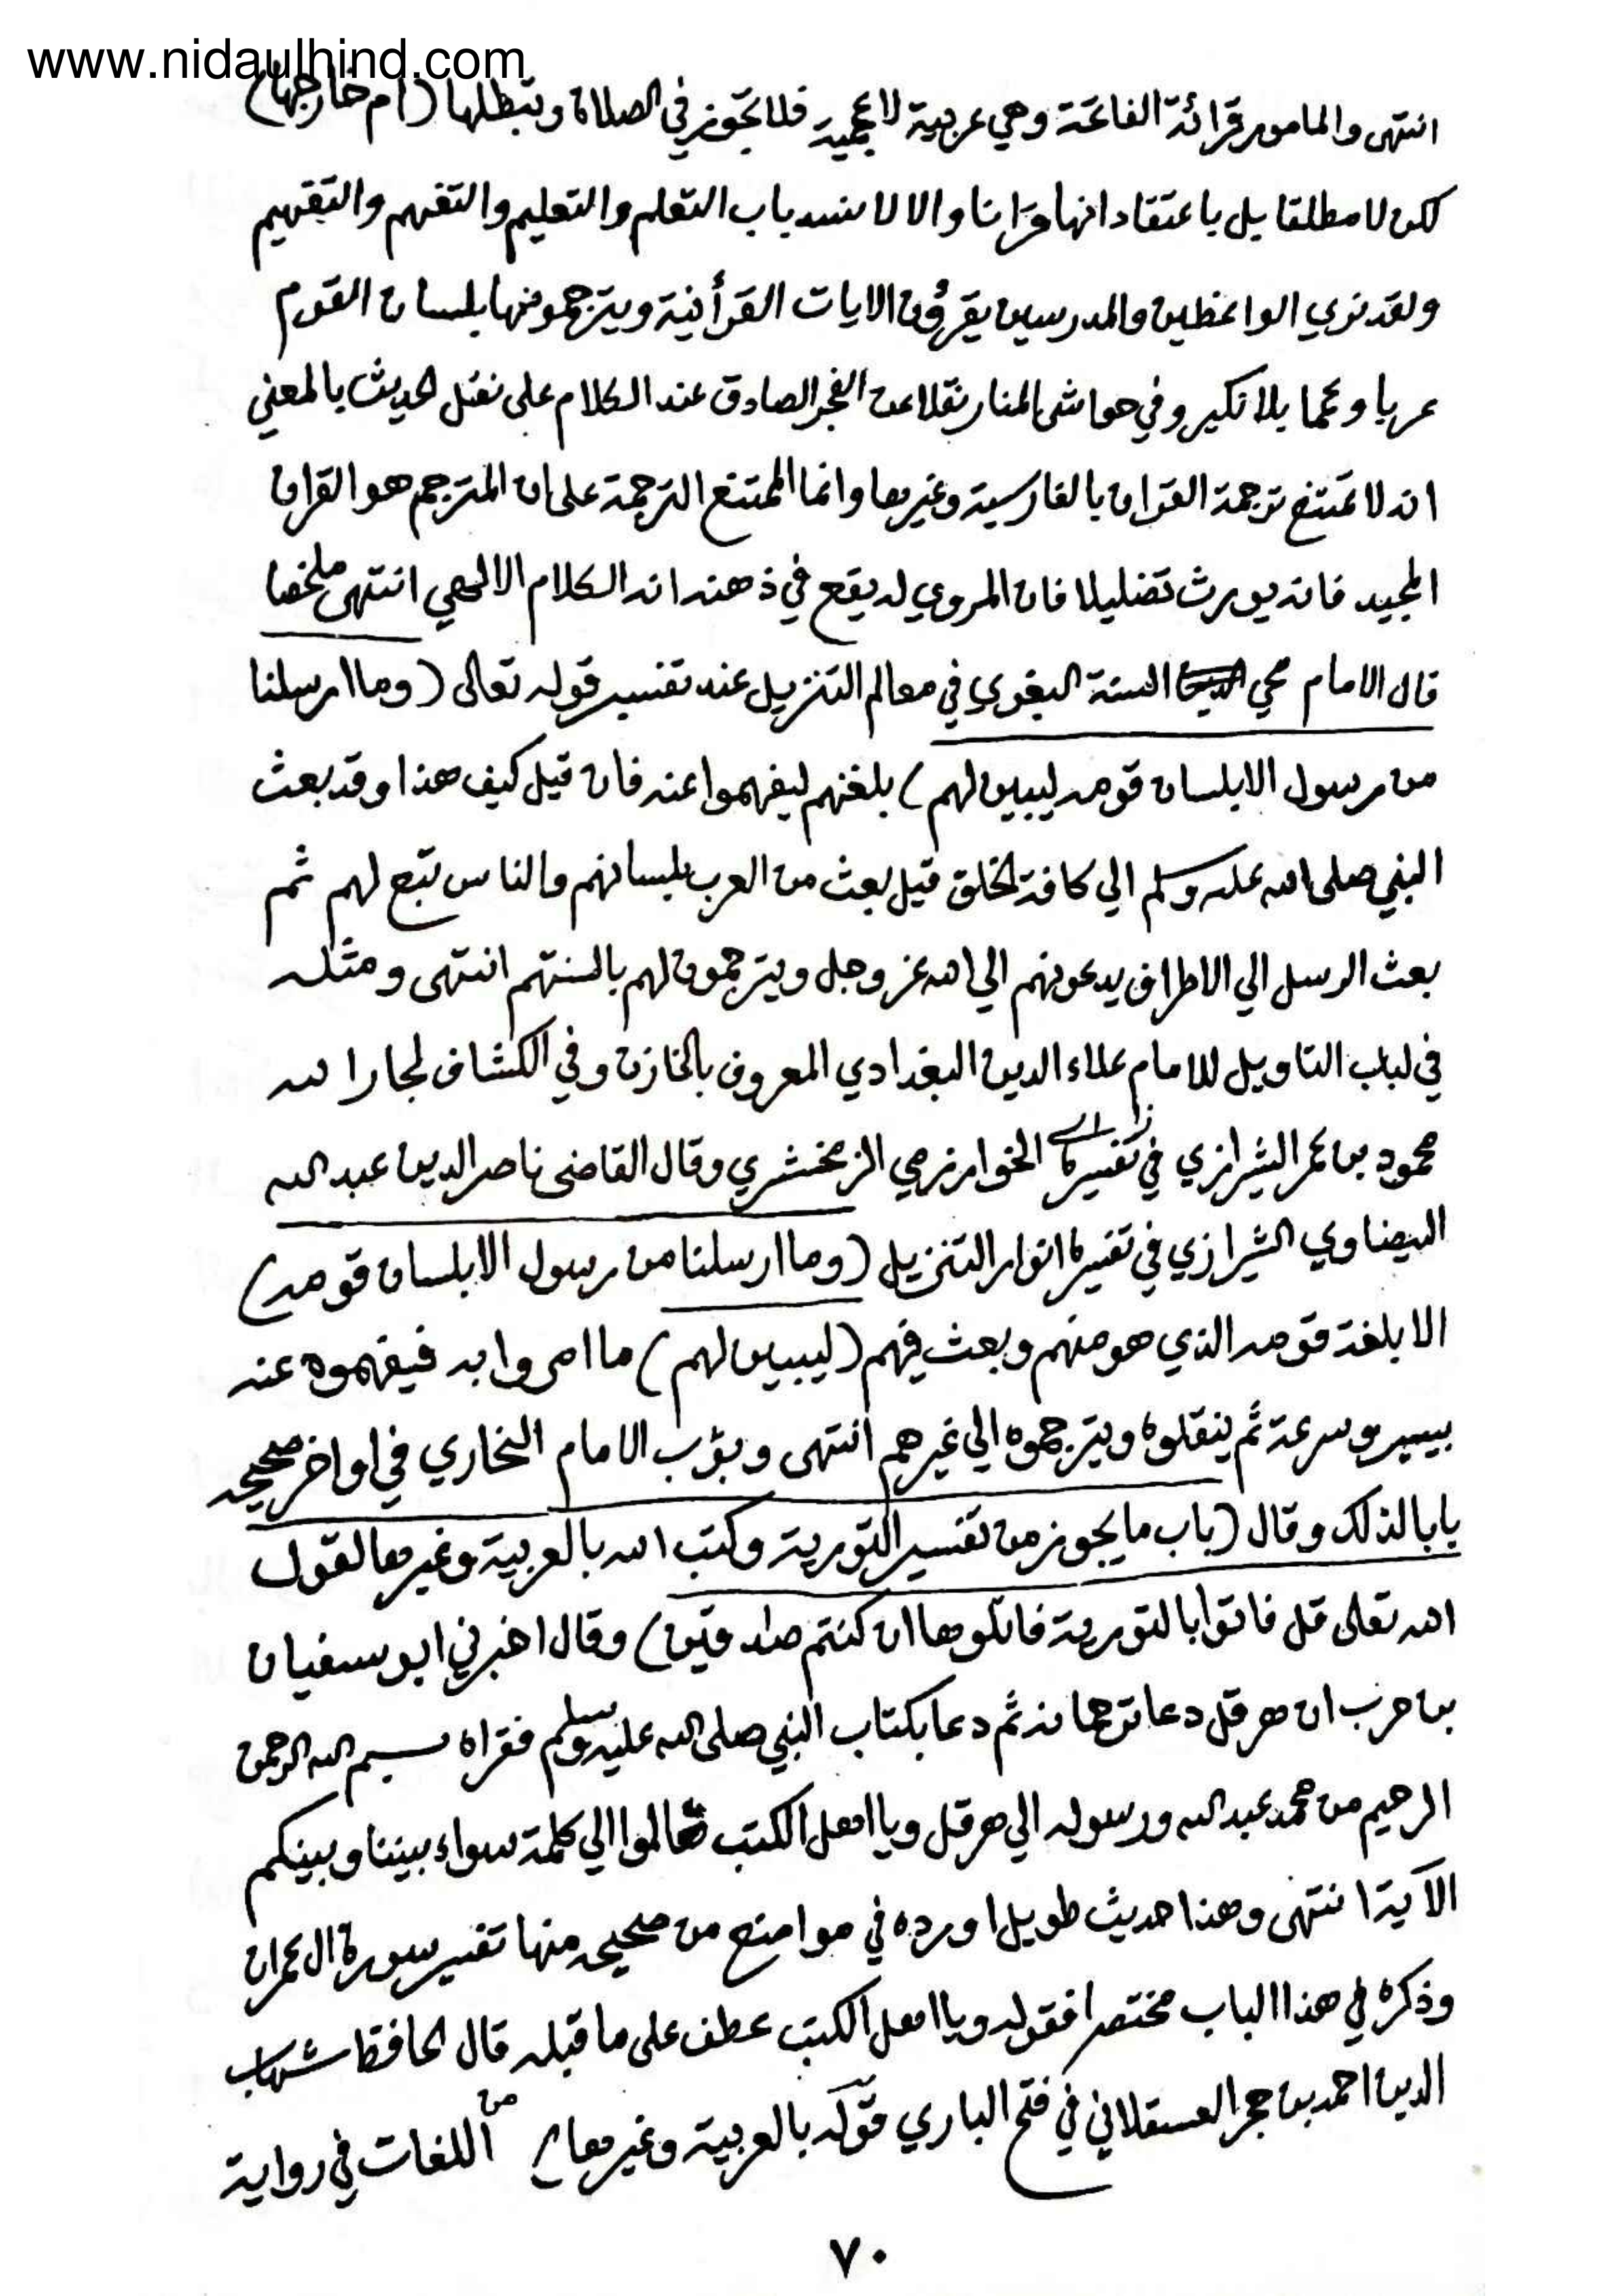 www.nidaulhind.com
انتهى والمامور قرائة الفاتحة وهي عربية لا عجمية فلا تجوز في الصلاة وتبطلها (ام خارجها)
لكن لا مطلقا بل باعتقاد انها قرانا والا لانسد باب التعلم والتعليم والتفهم والتفهيم
ولقد نري الواعظين والمدرسين يقرؤن الايات القرأنية ويترجمونها بلسان القوم
عربا وعجما بلا نكير وفي حواشى المنار نقلا عن الفجر الصادق عند الكلام على نقل الحديث بالمعني
انه لا تمتنع ترجمة القران بالفارسية وغيرها وانما الممتنع الترجمة على ان المترجم هو القران
المجيد فانه يورث تضليلا فان المروي له يقع في ذهنه انه الكلام الالهي انتهى ملخصا
قال الامام محي السنة البغوي في معالم التنزيل عند تفسير قوله تعالى (وما ارسلنا
من رسول الا بلسان قومه ليبين لهم) بلغتهم ليفهموا عنه فان قيل كيف هذا وقد بعث
النبي صلى الله عليه وسلم الي كافة الخلق قيل بعث من العرب بلسانهم والناس تبع لهم ثم
بعث الرسل الي الاطراف يدعونهم الي الله عز وجل ويترجمون لهم بالسنتهم انتهى ومثله
في لباب التاويل للامام علاء الدين البغدادي المعروف بالخازن وفي الكشاف لجار الله
محمود بن عمر الشيرازي في تفسيره الخوارزمي الزمخشري وقال القاضى ناصر الدين عبد الله
البيضاوي الشيرازي في تفسيره انوار التنزيل (وما ارسلنا من رسول الا بلسان قومه)
الا بلغة قومه الذي هو منهم وبعث فيهم (ليبين لهم) ما امروا به فيفهموه عنه
بيسر وسرعة ثم ينقلوه ويترجموه الي غيرهم انتهى وبوّب الامام البخاري في اواخر صحيحه
بابا لذلك وقال (باب ما يجوز من تفسير التورية وكتب الله بالعربية وغيرها لقول
الله تعالى قل فاتوا بالتورية فاتلوها ان كنتم صادقين) وقال اخبرني ابو سفيان
بن حرب ان هرقل دعا ترجمانه ثم دعا بكتاب النبي صلى الله عليه وسلم فقراه بسم الله الرحمن
الرحيم من محمد عبد الله ورسوله الي هرقل ويا اهل الكتب تعالوا الي كلمة سواء بيننا وبينكم
الآية انتهى وهذا حديث طويل اورده في مواضع من صحيحه منها تفسير سورة ال عمران
وذكره في هذا الباب مختصرا فقوله ويا اهل الكتب عطف على ما قبله قال الحافظ شهاب
الدين احمد بن حجر العسقلاني في فتح الباري قوله بالعربية وغيرها اي من اللغات في رواية
٧٠